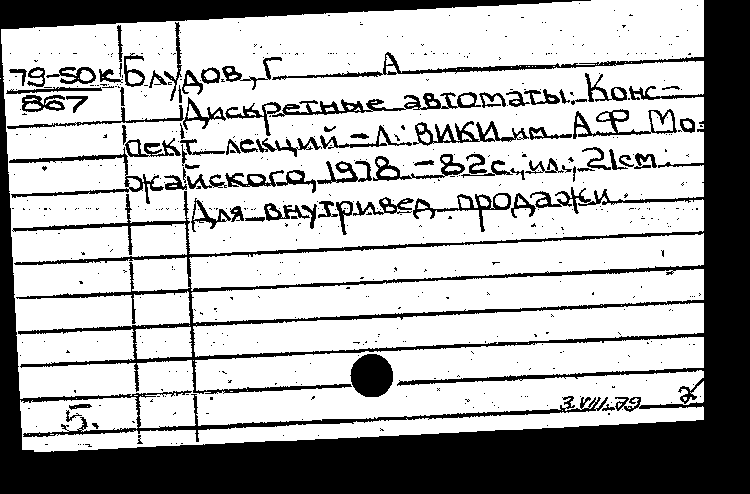 79-50к Блудов, Г А
867 Дискретные автоматы: Конс-
пект лекций - Л.: ВИКИ им. А Ф Мо-
жайского, 1978. - 82с.; ил.; 21см.
Для внутривед. продажи.
5. 3.VIII.79 2